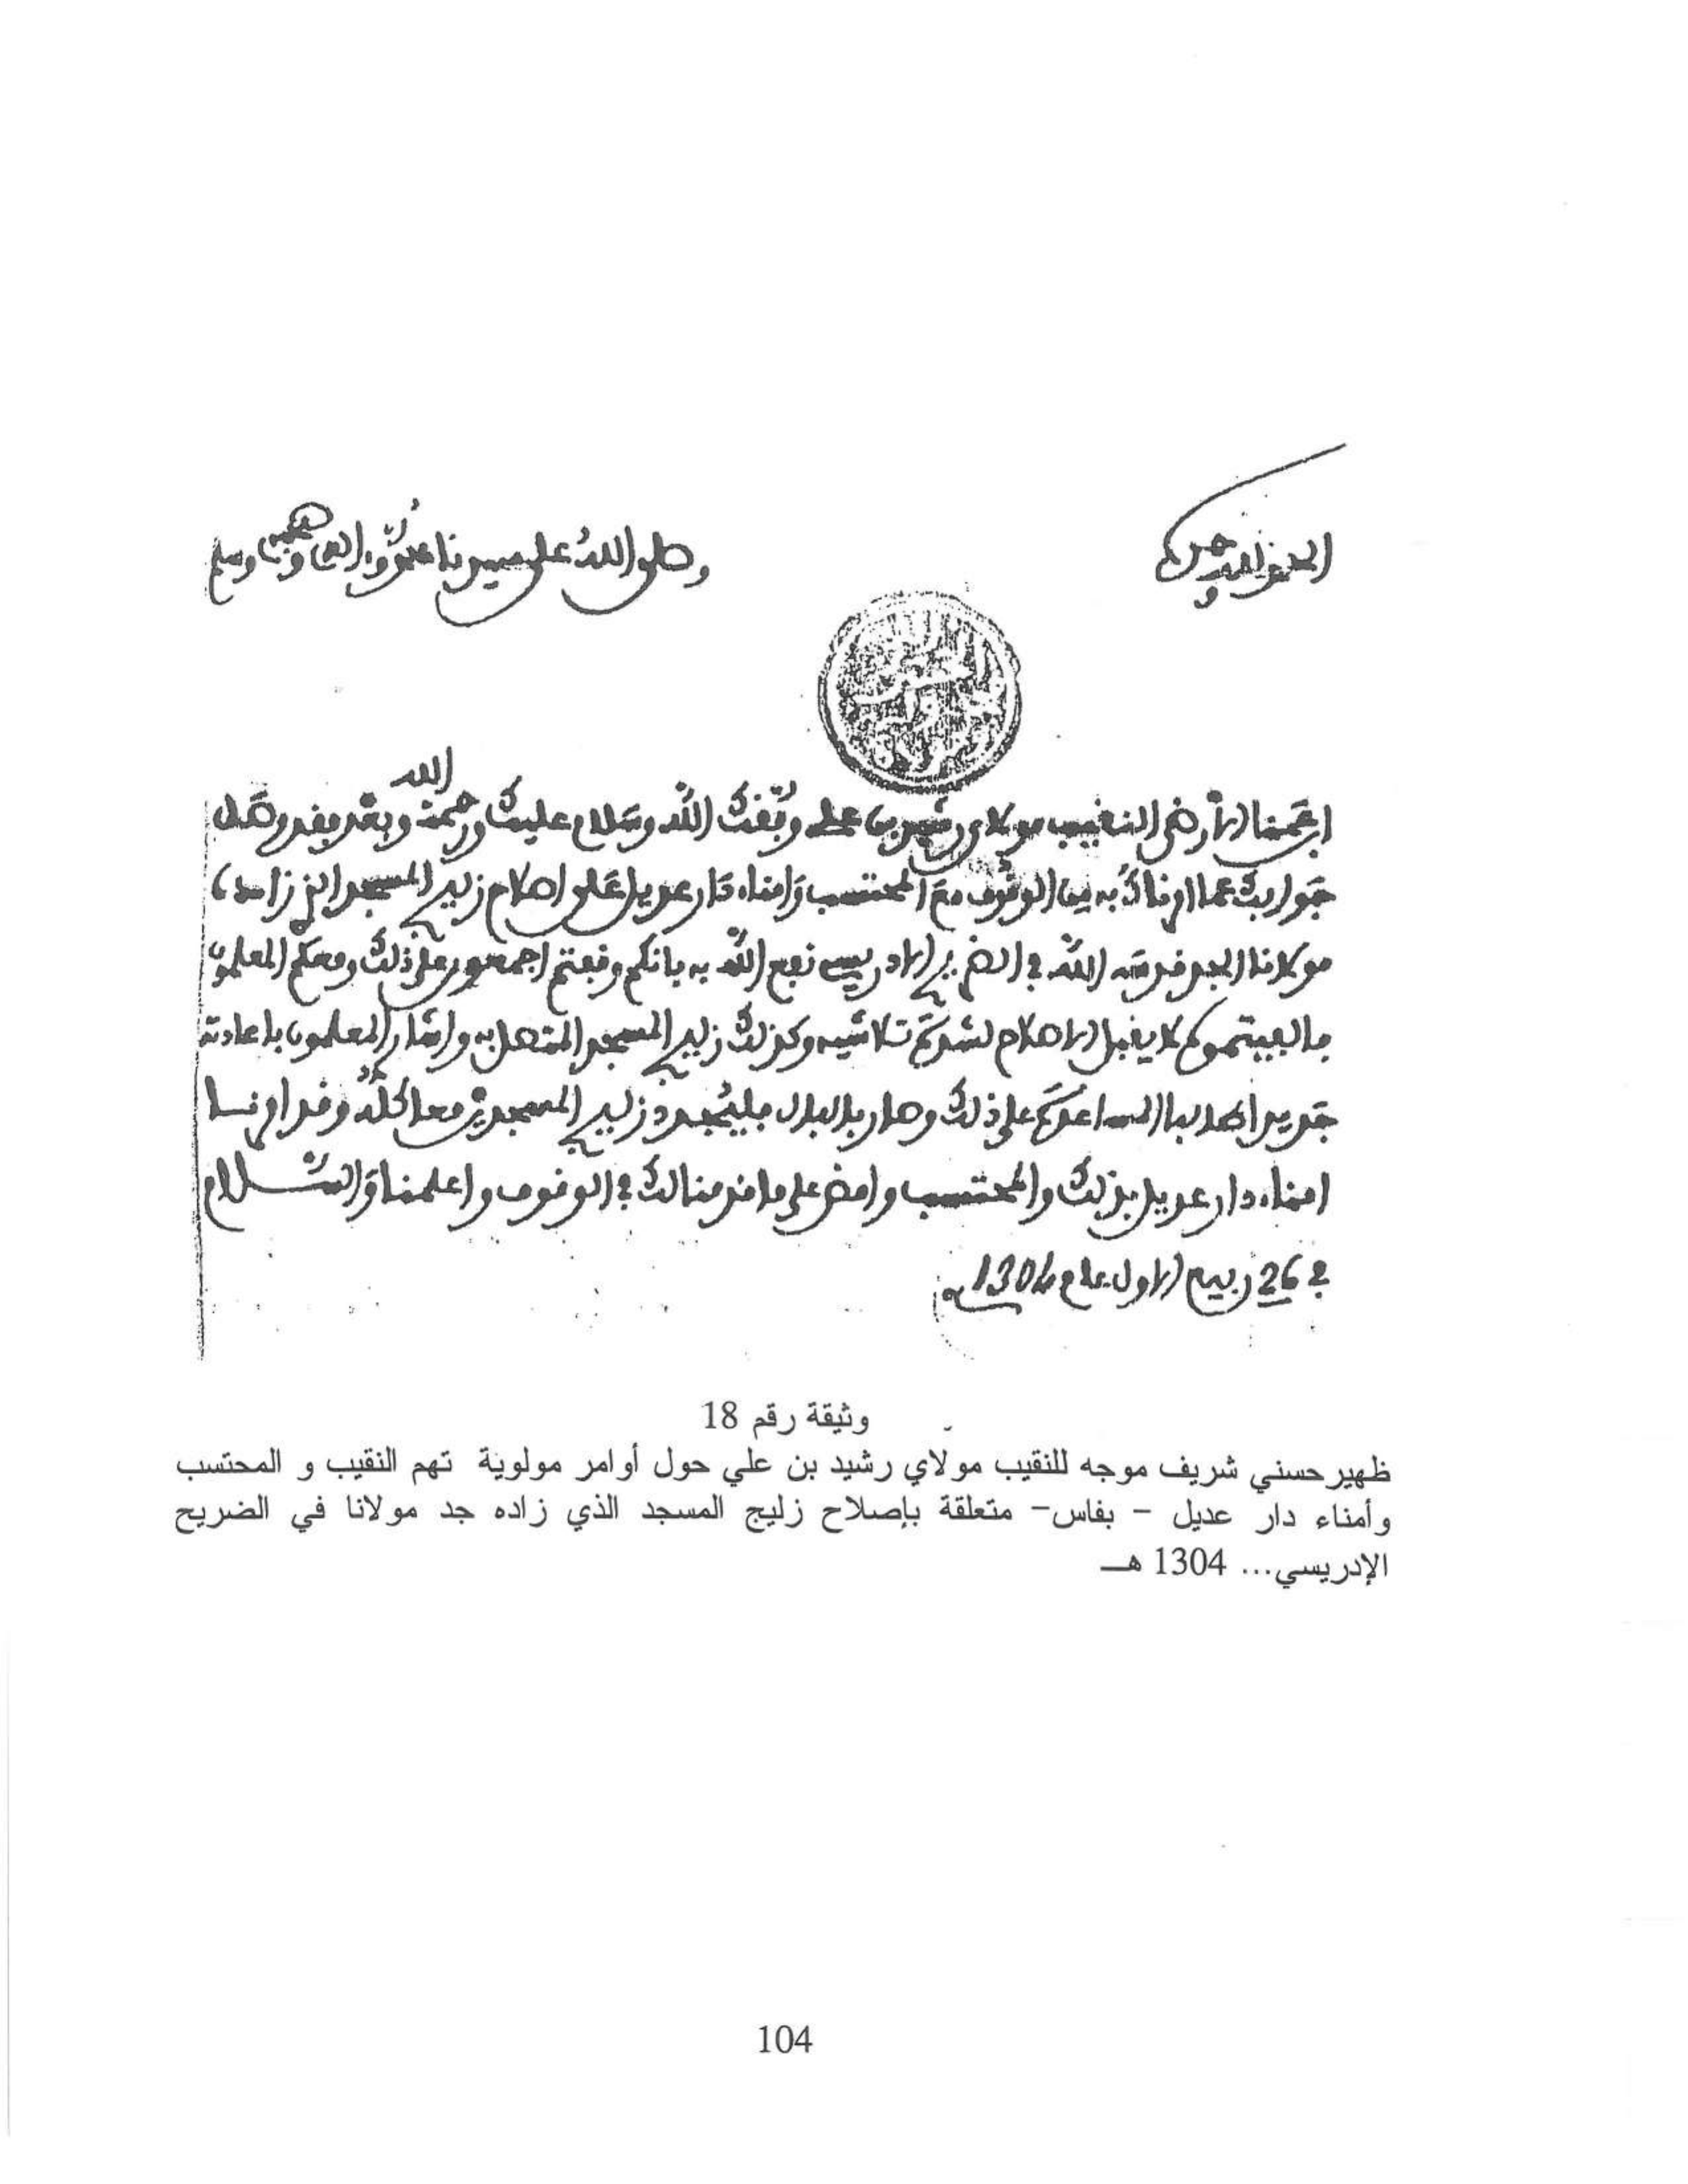 الحمد لله وحده
وصلى الله على سيدنا محمد وآله وصحبه وسلم
ابن عمنا الأرضى النقيب مولاي رشيد بن علي وفقك الله وسلام عليك ورحمة الله وبعد فقد وصل
جوابك عما امرناك به من الوقوف مع المحتسب وامناء دار عديل على اصلاح زليج المسجد الذي زاده
مولانا الجد قدسه الله في الضريح الادريسي نفع الله به بانكم وقفتم اجمعون على ذلك ومعكم المعلمون
فالفيتموه لا يقبل الاصلاح لشدة تلاشيه وكذلك زليج المسجد المتصل به واشار المعلمون باعادته
جديدا طالبا المساعدة على ذلك وصار بالبال فليجدد زليج المسجدين معا كله وقد امرنا
امناء دار عديل بذلك والمحتسب وامض على ما قدمنا لك في الوقوف واعلمناك والسلام
في 26 ربيع الاول عام 1304
وثيقة رقم 18
ظهير حسني شريف موجه للنقيب مولاي رشيد بن علي حول أوامر مولوية تهم النقيب و المحتسب
وأمناء دار عديل – بفاس– متعلقة بإصلاح زليج المسجد الذي زاده جد مولانا في الضريح
الإدريسي... 1304 هـ
104